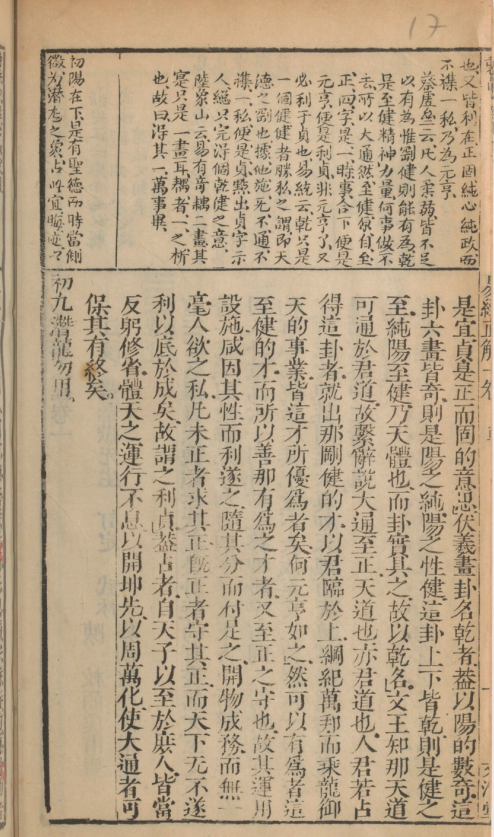 17
也又皆利在正固純心純政而
不襍一私乃為元亨
蔡虛齋云凡人柔弱皆不足
以有為惟剛健則能有為乾
是至健精神力量何事做不
去所以大通然至健原自至
正四字是一時事合下便是
元亨便是利貞非元亨了又
必利于貞也易統云乾只是
一個健健者勝私之謂即天
德之剛也據他施无不通不
襍一私便是貞點出貞字示
人總只完得個乾健之意
陸象山云易有奇耦二畫其
寔只是一畫耳耦者一之析
也故曰得其一萬事畢
初陽在下是有聖德而時當側
微為潛龙之象占者宜晦
易經正解一卷
是宜貞是正而固的意思伏羲畫卦名乾者葢以陽的數奇這
卦六畫皆奇則是陽之純陽之性健這卦上下皆乾則是健之
至純陽至健乃天體也而卦實具之故以乾名文王知那天道
可通於君道故繫辭說大通至正天道也亦君道也人君若占
得這卦者就出那剛健的才以君臨於上綱紀萬邦而乘龍御
天的事業皆這才所優爲者矣何元亨如之然可以有爲者這
至健的才而所以善那有爲之才者又至正之守也故其運用
設施咸因其性而利遂之隨其分而付足之開物成務而無一
毫人欲之私凡未正者求其正旣正者守其正而天下无不遂
利以底於成矣故謂之利貞葢占者自天子以至於庶人皆當
反躬修省體天之運行不息以開坤先以周萬化使大通者可
保其有終矣
初九潛龍勿用